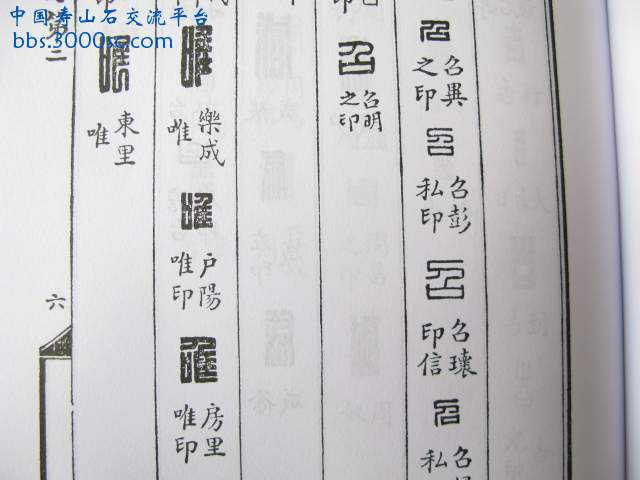 中国寿山石交流平台
bbs.3000sc.com
召異
之印
召彭
私印
召瓌
印信
召明
之印
樂成
唯
户陽
唯印
房里
唯印
東里
唯
第二
六